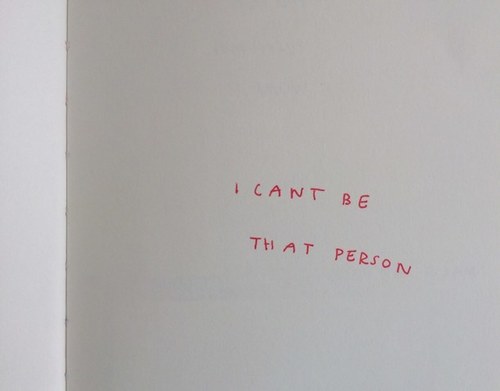 I CANT BE
THAT PERSON